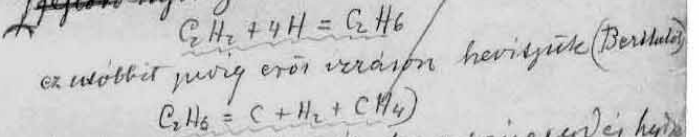 C₂H₂ + 4H = C₂H₆
ez utóbbit pedig erős izzáson hevítjük (Berthelot)
C₂H₆ = C + H₂ + CH₄)
és hydr